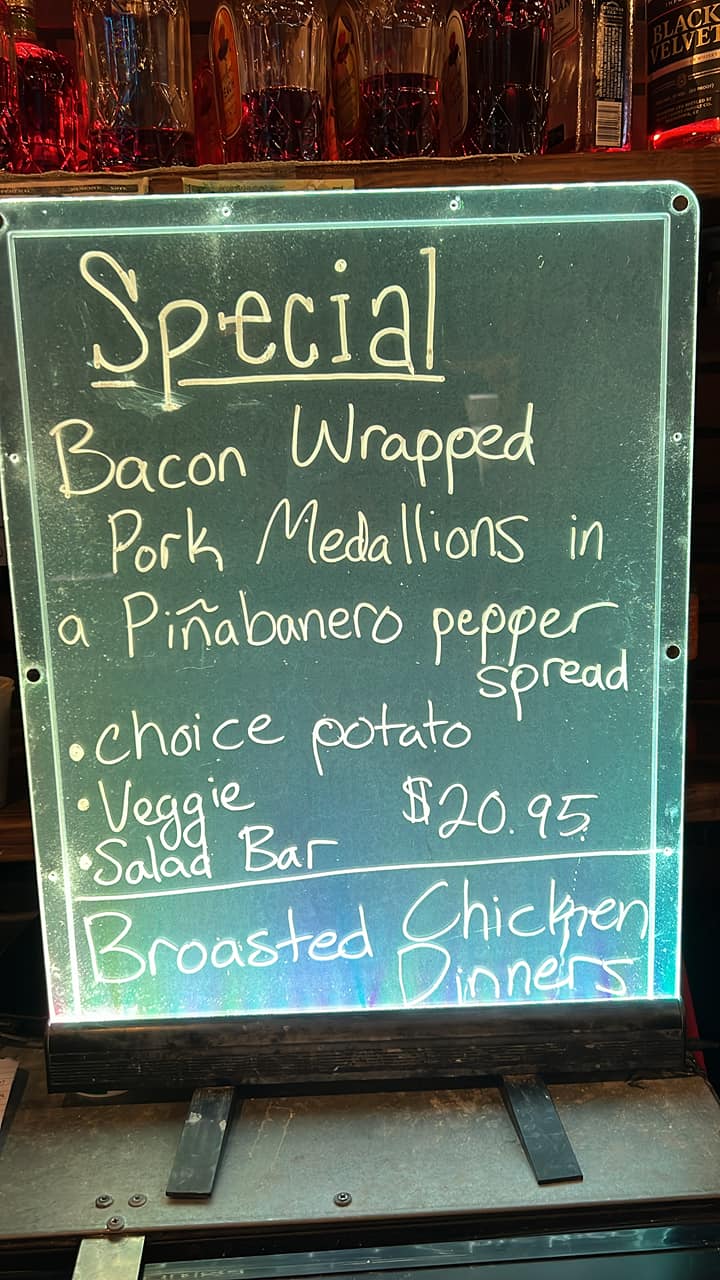 BLACK
VELVET
Special
Bacon Wrapped
Pork Medallions in
a Piñabanero pepper
spread
• choice potato
• Veggie
$20.95
• Salad Bar
Broasted Chicken
Dinners